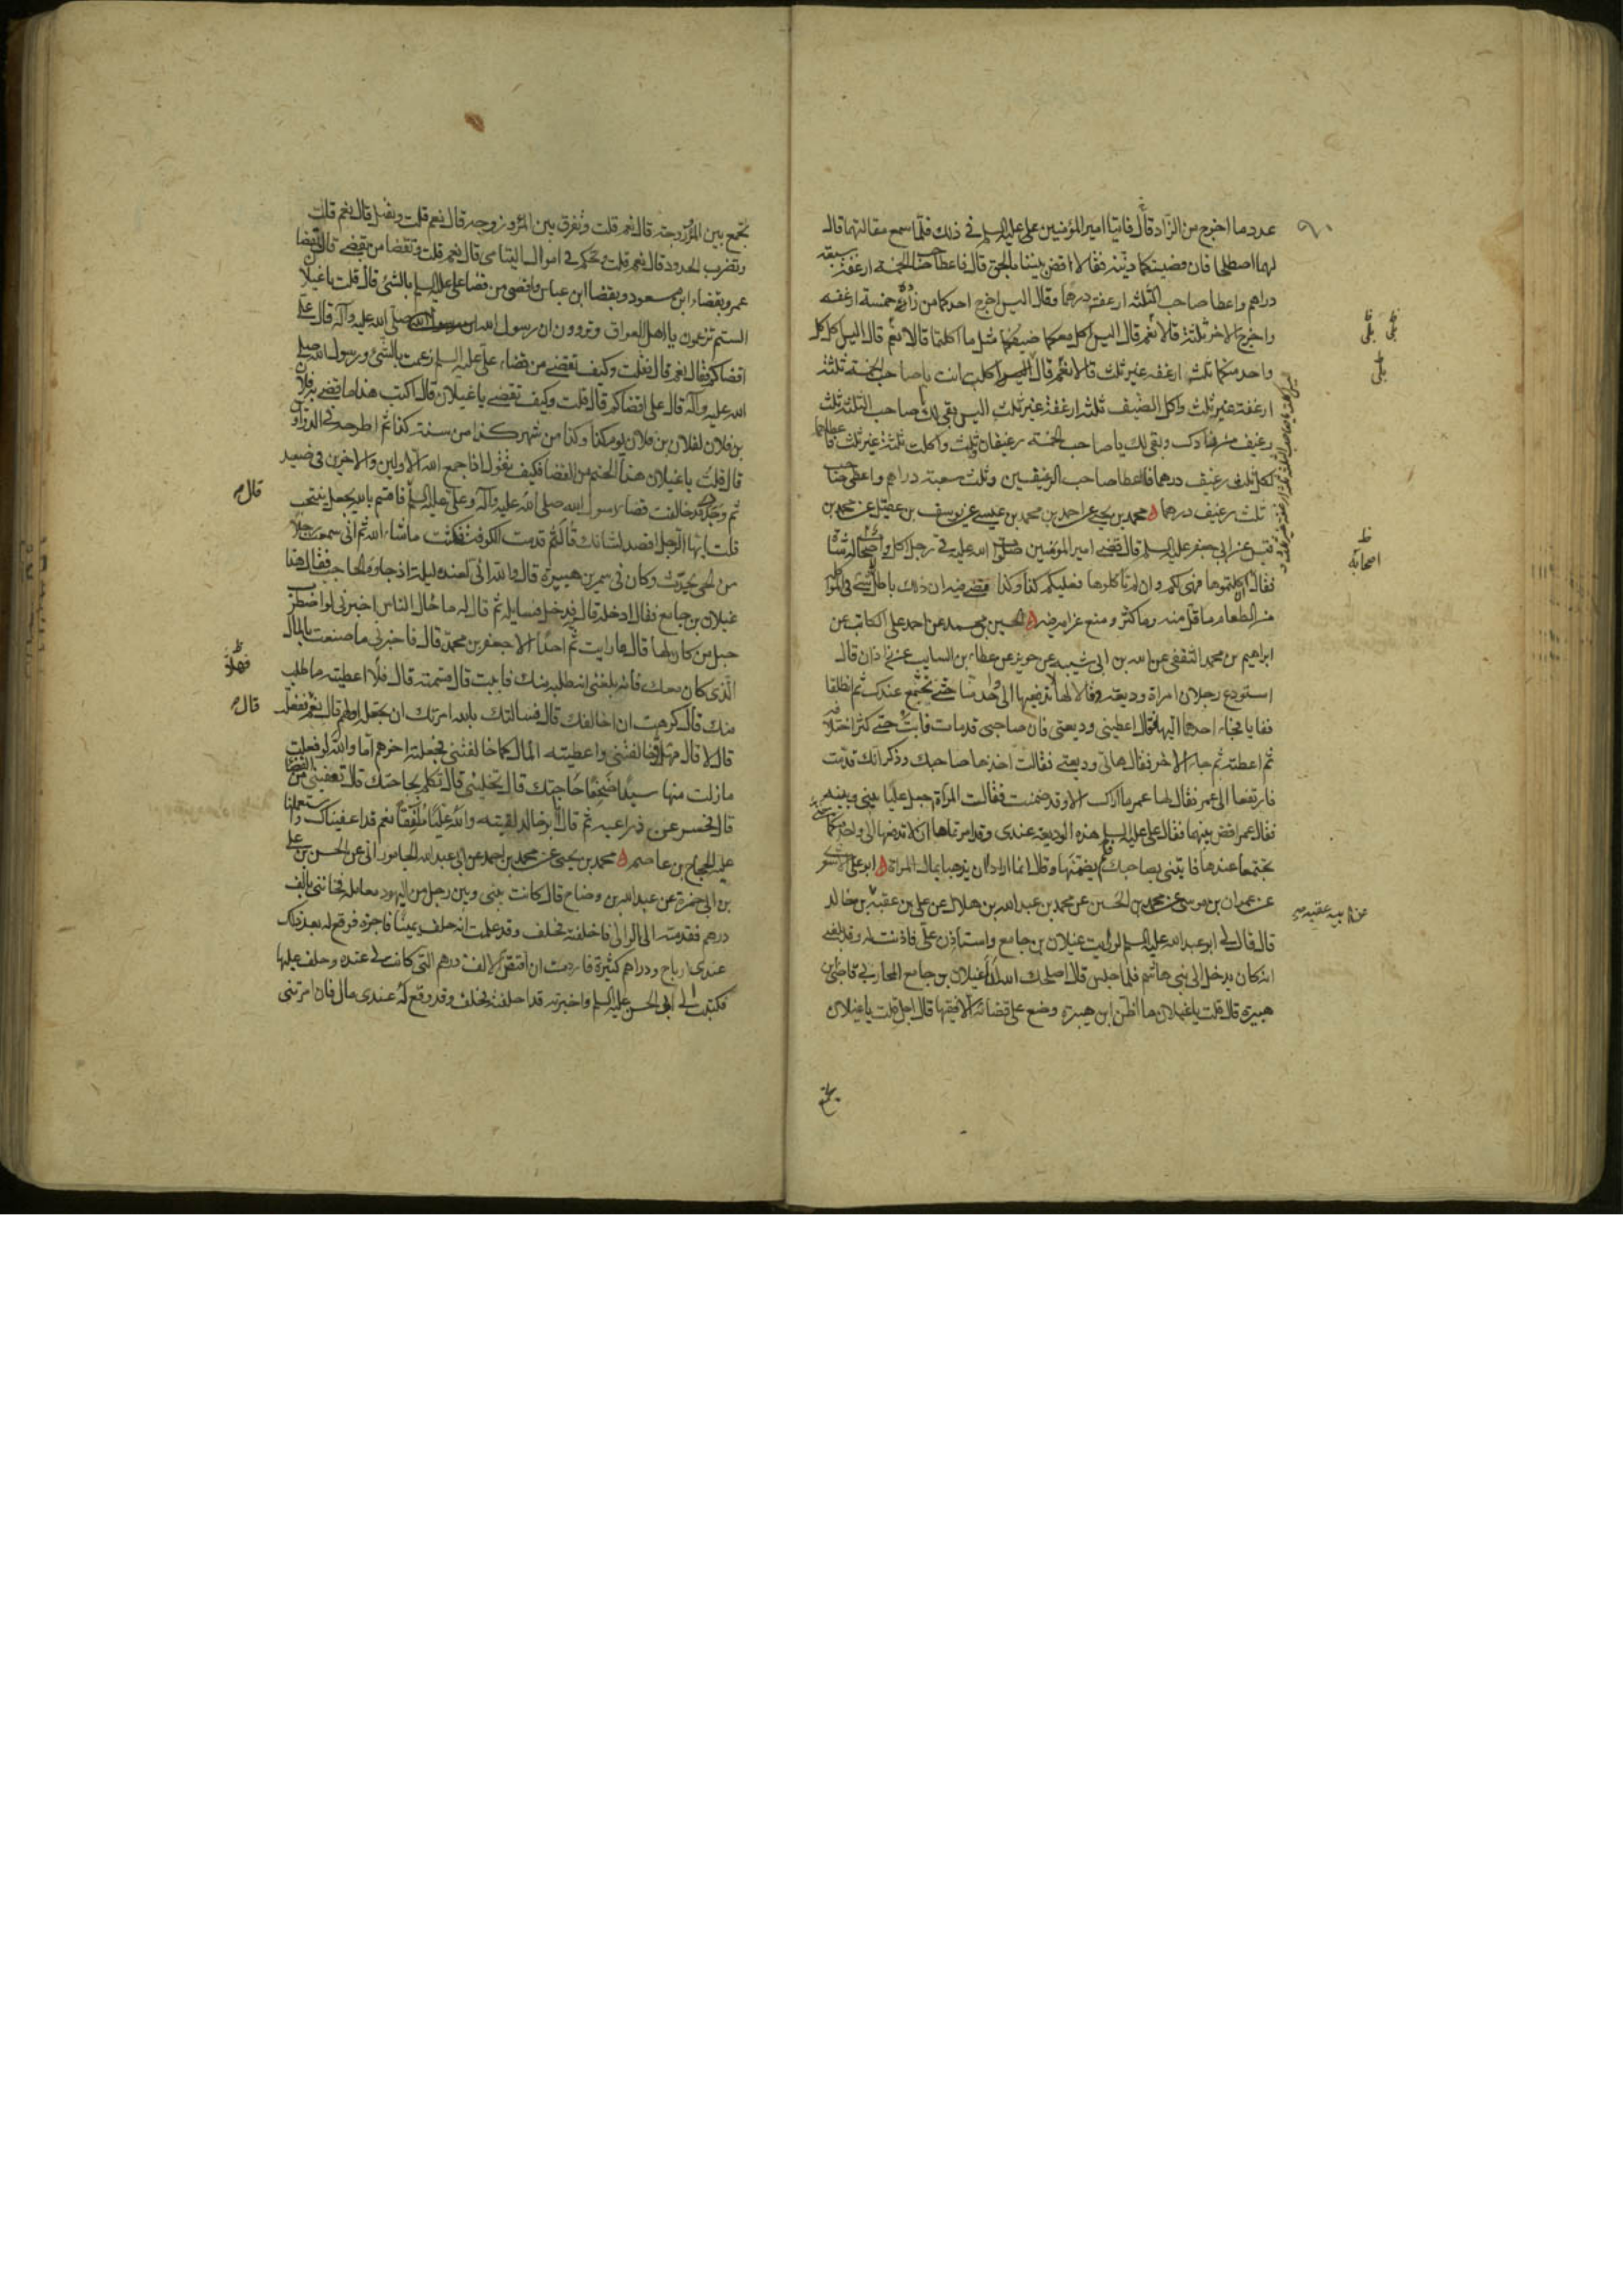 عدد ما اخرج من الزاد قال فاتيا امير المؤمنين على عليه السلم في ذلك فلما سمع مقالتهما قال
لهما اصطلحا فان قضيتكما دنيئة فقالا اقض بيننا بالحق قال فاعطا صاحب الخمسة ارغفة سبعة
دراهم واعطا صاحب الثلثة ارغفة درهما وقال اليس اخرج احدكما من زاده خمسة ارغفه
واخرج الاخر ثلثة قالا نعم قال اليس اكل معكما ضيفكما مثل ما اكلتما قالا نعم قال اليس اكل كل
واحد منكما ثلثه ارغفه غير ثلث قالا نعم قال اليس اكلت انت يا صاحب الخمسة ثلثة
ارغفة غير ثلث واكل الضيف ثلثه ارغفة غير ثلث اليس بقى لك يا صاحب الثلثة ثلث
رغيف من زادك وبقى لك يا صاحب الخمسه رغيفان وثلث واكلت ثلثة غير ثلث فاعطاهما
لكل ثلث رغيف درهما فاعطا صاحب الرغيفين وثلث سبعة دراهم واعطى صاحب
ثلث رغيف درهما محمد بن يحيى عن احمد بن محمد بن عيسى عن يوسف بن عقيل عن محمد بن
قيس عن ابى جعفر عليه السلم قال قضى امير المؤمنين صلوات الله عليه في رجل اكل واصحاب له شاة
فقال ان اكلتموها فهى لكم وان لم تأكلوها فعليكم كذا وكذا فقضى فيه ان ذلك باطل لا شئ في المواكلة
من الطعام ما قل منه وما كثر ومنع غرامته فيه الحسين بن محمد عن احمد بن على الكاتب عن
ابراهيم بن محمد الثقفى عن عبد الله بن ابى شيبه عن حريز عن عطاء بن السايب عن زاذان قال
استودع رجلان امراة وديعة وقالا لها لا تدفعيها الى واحد منا حتى نجتمع عندك ثم انطلقا
فغابا فجاء احدهما اليها فقال اعطينى وديعتى فان صاحبى قد مات فابت حتى كثر اختلافه
ثم اعطته ثم جاء الاخر فقال هاتى وديعتى فقالت اخذها صاحبك وذكر انك قد مت
فارتفعا الى عمر فقال لها عمر ما اراك الا وقد ضمنت فقالت المراة اجعل عليا بينى وبينه
فقال عمر اقض بينهما فقال على عليه السلم هذه الوديعة عندى وقد امرتماها ان لا تدفعها الى واحد منكما حتى
تجتمعا عندها فاتينى بصاحبك فلم يضمنها وقال انما ارادا ان يذهبا بمال المراة ابو على الاشعرى
عن عمران بن موسى عن محمد بن الحسين عن محمد بن عبد الله بن هلال عن على بن عقبة بن خالد
قال قال لى ابو عبد الله عليه السلم لو رايت غيلان بن جامع واستأذن على فاذنت له وقد بلغنى
انه كان يدخل الى بنى هاشم فلما جلس قال اصلحك الله انا غيلان بن جامع المحاربى قاضى ابن
هبيرة قال قلت يا غيلان ما اظن ابن هبيرة وضع على قضائه الا فقيها قال اجل قلت يا غيلان
تجمع
٩٠
بلى بلى
بلى
ظ
اصحابه
عن ابيه عقبة
تجمع بين المرء وزوجته قال نعم قلت وتفرق بين المرء وزوجه قال نعم قلت وتقتل قال نعم قلت
وتضرب الحدود قال نعم قلت وتحكم فى اموال اليتامى قال نعم قلت وبقضا من تقضى قال بقضا
عمر وبقضاء ابن مسعود وبقضا ابن عباس واقضى من قضا على عليه السلم بالشئ قال قلت يا غيلان
الستم تزعمون يا اهل العراق وتروون ان رسول الله صلى الله عليه وآله قال على
اقضاكم فقال نعم قال فقلت وكيف تقضى من قضاء على عليه السلم زعمت بالشئ ورسول الله صلى
الله عليه وآله قال على اقضاكم قال قلت وكيف تقضى يا غيلان قال اكتب هذا ما قضى به فلان
بن فلان لفلان بن فلان يوم كذا وكذا من شهر كذا من سنة كذا ثم اطرحه فى الدواوين
قال قلت يا غيلان هذا الحتم من القضا فكيف تقول اذا جمع الله الاولين والاخرين فى صعيد
ثم وجدك قد خالفت قضاء رسول الله صلى الله عليه وآله وعلى عليه السلم قال فاقسم بالله لجعل ينتحب
قلت ايها الرجل اقصد لشانك قال ثم قدمت الكوفة فمكثت ماشاء الله ثم انى سمعت رجلا
من الحى يحدث وكان فى سمر ابن هبيرة قال والله انى لعنده ليلة اذ جاءه الحاجب فقال هذا
غيلان بن جامع فقال ادخله قال فدخل فسايله ثم قال له ما حال الناس اخبرنى لو اضطرب
حبل من كان لها قال ما رايت ثم احدا الا جعفر بن محمد قال فاخبرنى ما صنعت بالمال
الذى كان معك فانه بلغنى انه طلبه منك فابيت قال قسمته قال فلا اعطيته ما طلب
منك قال كرهت ان اخالفك قال فسالتك بالله امرتك ان تجعله اولهم قال نعم ففعلت
قال لا قال فهلا خالفتنى واعطيته المال كما خالفتنى فجعلته اخرهم اما والله لو فعلت
ما زلت منها سيدا ضخما حاجتك قال تخلينى قال تكلم بحاجتك قال تعفينى من القضاء
قال فحسر عن ذراعيه ثم قال انا ابو خالد لقيته والله علبا ملفقا نعم قد اعفيناك واستعملنا
عليه الحجاج بن عاصم محمد بن يحيى عن محمد بن احمد عن ابى عبد الله الجامورانى عن الحسن بن على
بن ابى حمزة عن عبد الله بن وضاح قال كانت بينى وبين رجل من اليهود معاملة فخاننى بالف
درهم فقدمته الى الوالى فاحلفته فحلف وقد علمت انه حلف يمينا فاجرة فوقع له بعد ذلك
عندى ارباح ودراهم كثيرة فاردت ان اقتص الالف درهم التى كانت لى عنده وحلف عليها
فكتبت الى ابى الحسن عليه السلم واخبرته انى قد احلفته فحلف وقد وقع له عندى مال فان امرتنى
قال
ظ
فهلا
قال